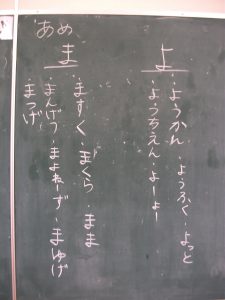 あめ
よ
・ようかん・ようふく・よっと
・ようちえん・よーよー
ま
・ますく・まくら・まま
・まんげつ・まよねーず・まゆげ
・まつげ